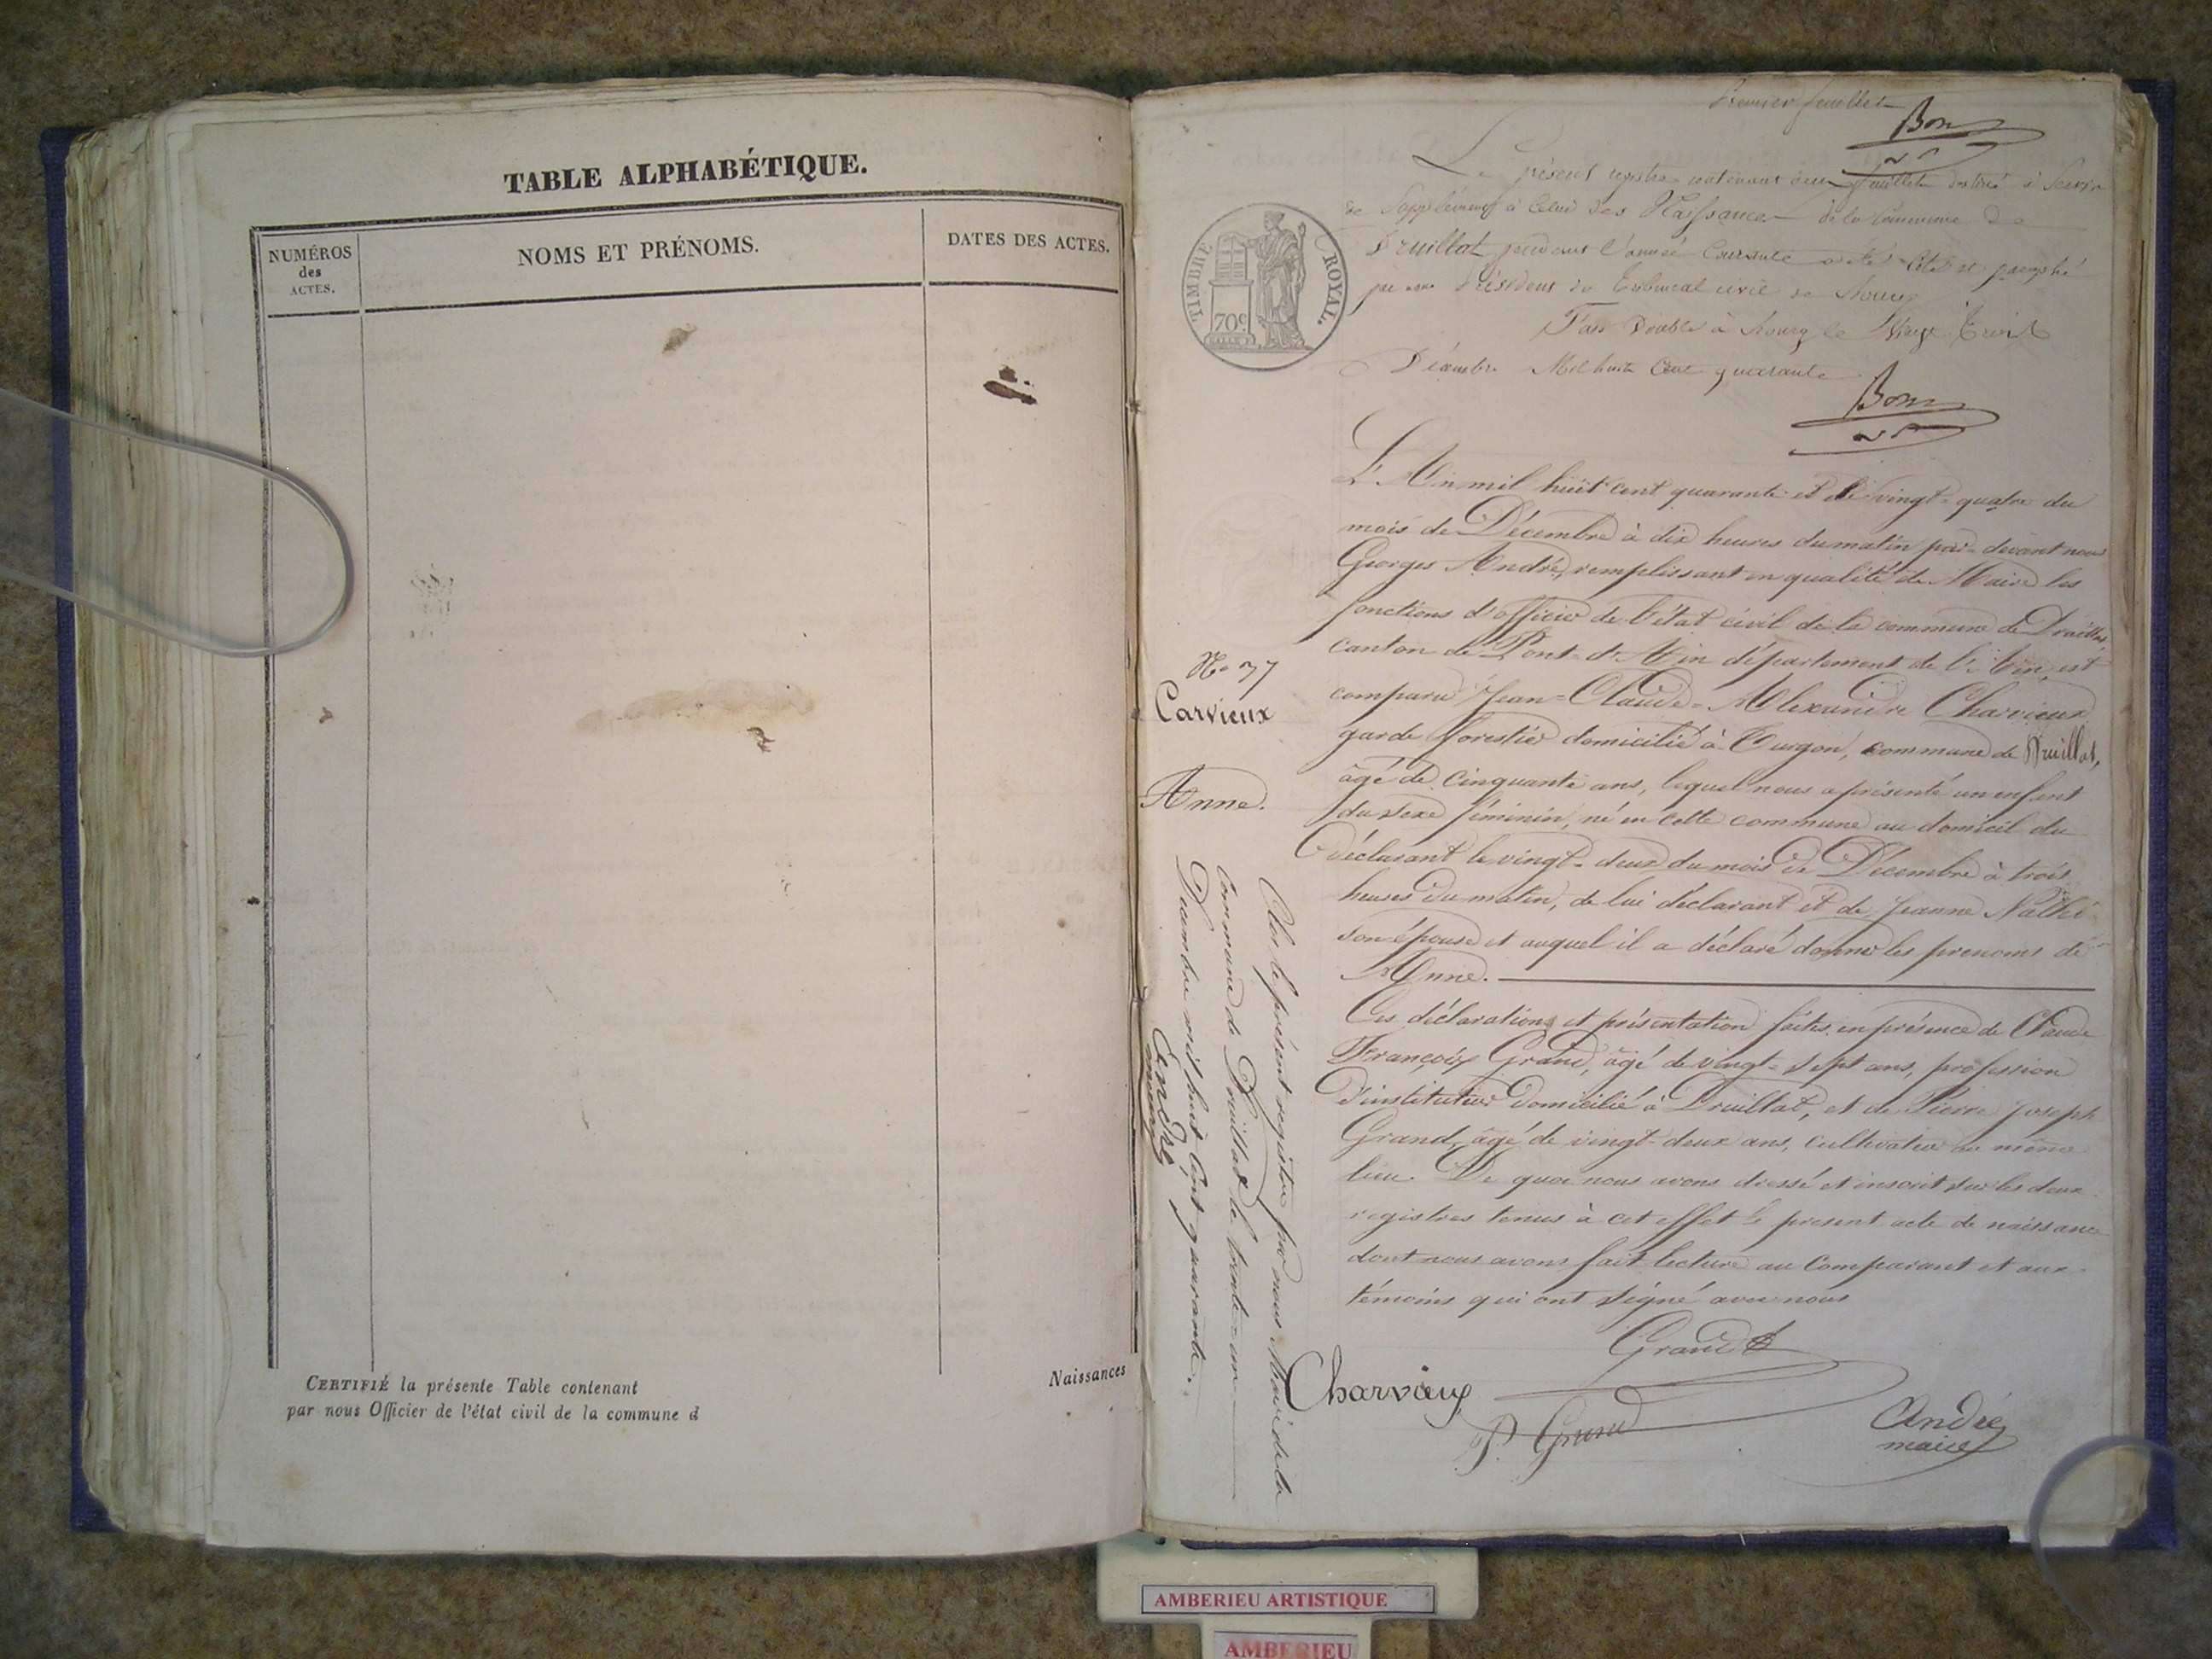 TABLE ALPHABÉTIQUE.
NUMÉROS
des
ACTES.
NOMS ET PRÉNOMS.
DATES DES ACTES.
CERTIFIÉ la présente Table contenant
par nous Officier de l'état civil de la commune d
Naissances
Premier feuillet
Bon
Le présent registre contenant deux feuillets destiné à servir
de Supplément à Celui des Naissances de la Commune de
Druillat pendant l'année Courante a été Coté et paraphé
par nous Président du Tribunal civil de Bourg
Fait Double à Bourg le Vingt Trois
Décembre Mil huit Cent quarante
Bon
TIMBRE ROYAL.
70c
L'An mil huit cent quarante et le vingt-quatre du
mois de Décembre à dix heures du matin par-devant nous
Georges André, remplissant en qualité de Maire les
fonctions d'officier de l'état civil de la commune de Druillat,
canton de Pont-d'Ain département de l'Ain, est
comparu Jean-Claude-Alexandre Charvieux
garde forestier domicilié à Turgon, commune de Druillat,
âgé de cinquante ans, lequel nous a présenté un enfant
du sexe féminin, né en cette commune au domicil du
déclarant le vingt-deux du mois de Décembre à trois
heures du matin, de lui déclarant et de Jeanne
son épouse et auquel il a déclaré donner les prenoms de
Anne.
Ces déclarations et présentation faites en présence de Claude
François Grand, âgé de vingt-sept ans, profession
d'instituteur domicilié à Druillat, et de Pierre joseph
Grand, âgé de vingt-deux ans, cultivateur au même
lieu. De quoi nous avons dressé et inscrit sur les deux
registres tenus à cet effet le présent acte de naissance
dont nous avons fait lecture au Comparant et aux
témoins qui ont signé avec nous
Grand
Charvieux
P. Grand
André
maire
No 37
Carvieux
Anne.
Clos le présent registre par nous Maire de la
Commune de Druillat le trente un
Décembre mil huit Cent quarante.
André
maire
AMBERIEU ARTISTIQUE
AMBERIEU